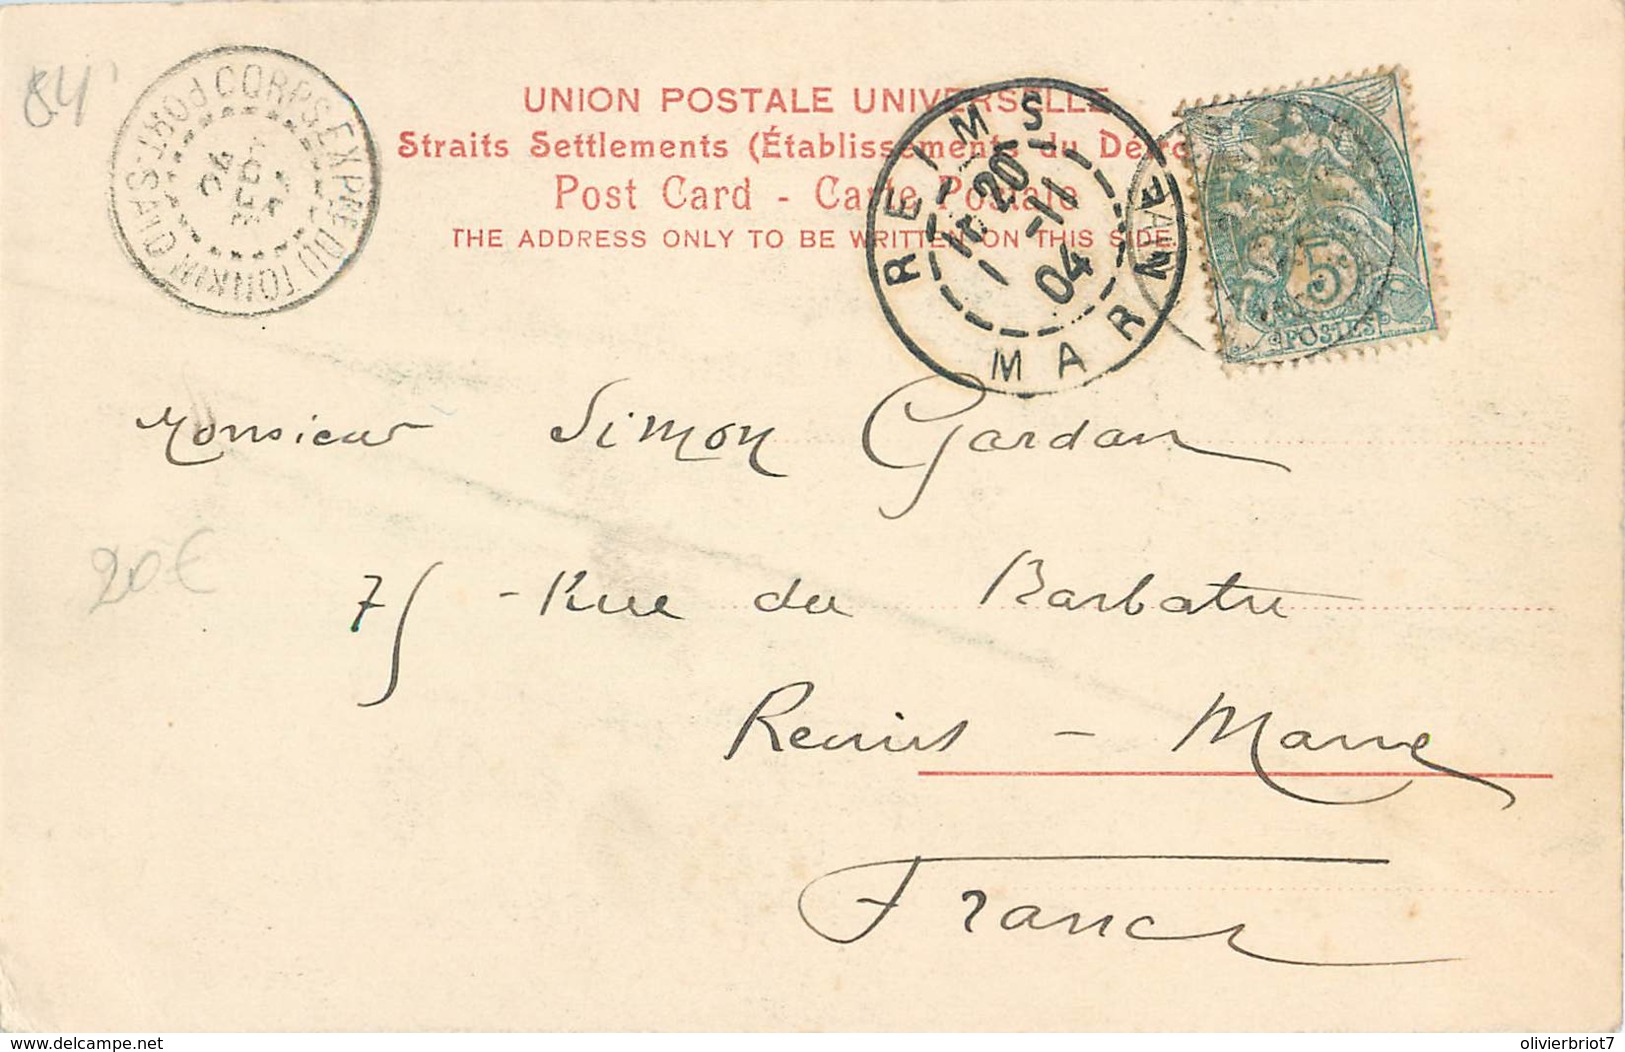 84
CORPS EXPRE DU TONKIN
PORT-SAID
04
UNION POSTALE UNIVERSELLE
Straits Settlements (Établissements du Détro
Post Card - Carte Postale
THE ADDRESS ONLY TO BE WRITTEN ON THIS SIDE
REIMS
20
-11
04
MARNE
5
POSTES
Monsieur Simon Gardan
20€
75 - Rue du Barbatre
Reims - Marne
France
delcampe.net
olivierbriot7